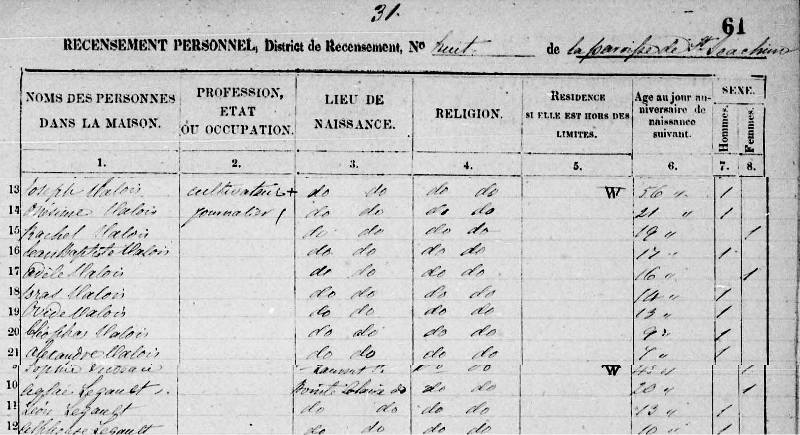 31.
61
RECENSEMENT PERSONNEL, District de Recensement, No huit. de la paroisse de St Joachim
NOMS DES PERSONNES DANS LA MAISON. PROFESSION, ETAT OU OCCUPATION. LIEU DE NAISSANCE. RELIGION. RESIDENCE SI ELLE EST HORS DES LIMITES. Age au jour anniversaire de naissance suivant. SEXE. Hommes. Femmes.
1. 2. 3. 4. 5. 6. 7. 8.
13 Joseph Valois cultivateur + do do do do W 56 " 1
14 Onésime Valois journalier / do do do do 21 " 1
15 Rachel Valois do do do do 19 " 1
16 Jean Baptiste Valois do do do do 17 " 1
17 Adèle Valois do do do do 16 " 1
18 Valois do do do do 14 " 1
19 Ovide Valois do do do do 13 " 1
20 Cléophas Valois do do do do 9 " 1
21 Alexandre Valois do do do do 7 " 1
Sophie W
10 Aglaé Legault Pointe Claire do do do 20 " 1
11 Léon Legault do do do do 13 " 1
12 Alphonse Legault do do do do 10 " 1